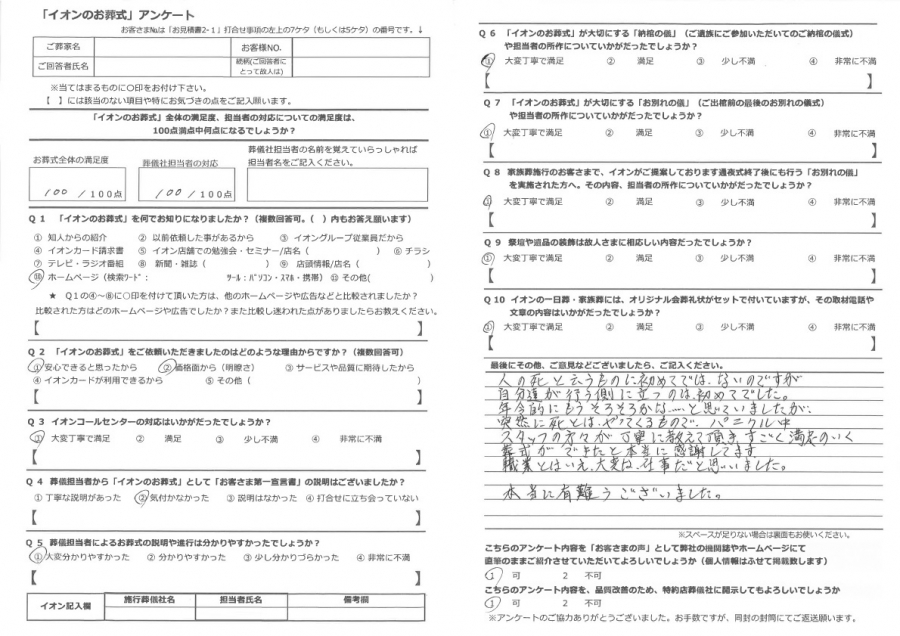 「イオンのお葬式」アンケート
お客さま№は「お見積書2-1」打合せ事項の左上の7ケタ（もしくは5ケタ）の番号です。↓
ご葬家名 お客様NO.
ご回答者氏名 続柄(ご回答者にとって故人は)
※当てはまるものに○印をお付け下さい。
【 】には該当のない項目や特にお気づきの点をご記入願います。
「イオンのお葬式」全体の満足度、担当者の対応についての満足度は、
100点満点中何点になるでしょうか？
お葬式全体の満足度
100 /100点
葬儀社担当者の対応
100 /100点
葬儀社担当者の名前を覚えていらっしゃれば
担当者名をご記入ください。
Q 1 「イオンのお葬式」を何でお知りになりましたか？（複数回答可。( ）内もお答え願います）
① 知人からの紹介 ② 以前依頼した事があるから ③ イオングループ従業員だから
④ イオンカード請求書 ⑤ イオン店舗での勉強会・セミナー/店名（ ） ⑥ チラシ
⑦ テレビ・ラジオ番組 ⑧ 新聞・雑誌（ ） ⑨ 店頭情報/店名（ ）
⑩ ホームページ（検索ﾜｰﾄﾞ： ﾂｰﾙ：ﾊﾟｿｺﾝ・ｽﾏﾎ・携帯） ⑪ その他( )
★ Q1の④～⑩に○印を付けて頂いた方は、他のホームページや広告などと比較されましたか？
比較された方はどのホームページや広告でしたか？また比較し迷われた点がありましたらお教えください。
【 】
Q 2 「イオンのお葬式」をご依頼いただきましたのはどのような理由からですか？（複数回答可）
① 安心できると思ったから ② 価格面から（明瞭さ） ③ サービスや品質に期待したから
④ イオンカードが利用できるから ⑤ その他（ ）
【 】
Q 3 イオンコールセンターの対応はいかがだったでしょうか？
① 大変丁寧で満足 ② 満足 ③ 少し不満 ④ 非常に不満
【 】
Q 4 葬儀担当者から「イオンのお葬式」として「お客さま第一宣言書」の説明はございましたか？
① 丁寧な説明があった ② 気付かなかった ③ 説明はなかった ④ 打合せに立ち会っていない
【 】
Q 5 葬儀担当者によるお葬式の説明や進行は分かりやすかったでしょうか？
① 大変分かりやすかった ② 分かりやすかった ③ 少し分かりづらかった ④ 非常に不満
【 】
イオン記入欄 施行葬儀社名 担当者氏名 備考欄
Q 6 「イオンのお葬式」が大切にする「納棺の儀」（ご遺族にご参加いただいてのご納棺の儀式）
や担当者の所作についていかがだったでしょうか？
① 大変丁寧で満足 ② 満足 ③ 少し不満 ④ 非常に不満
【 】
Q 7 「イオンのお葬式」が大切にする「お別れの儀」（ご出棺前の最後のお別れの儀式）
や担当者の所作についていかがだったでしょうか？
① 大変丁寧で満足 ② 満足 ③ 少し不満 ④ 非常に不満
【 】
Q 8 家族葬施行のお客さまで、イオンがご提案しております通夜式終了後にも行う「お別れの儀」
を実施された方へ。その内容、担当者の所作についていかがだったでしょうか？
① 大変丁寧で満足 ② 満足 ③ 少し不満 ④ 非常に不満
【 】
Q 9 祭壇や遺品の装飾は故人さまに相応しい内容だったでしょうか？
① 大変丁寧で満足 ② 満足 ③ 少し不満 ④ 非常に不満
【 】
Q 10 イオンの一日葬・家族葬には、オリジナル会葬礼状がセットで付いていますが、その取材電話や
文章の内容はいかがだったでしょうか？
① 大変丁寧で満足 ② 満足 ③ 少し不満 ④ 非常に不満
【 】
最後にその他、ご意見などございましたら、ご記入ください。
人の死と云うものに初めてでは、ないのですが
自分達が行う側に立つのは初めてでした。
年令的にもうそろそろかな……と思っていましたが、
突然に死とは、やってくるもので、パニクル中
スタッフの方々が丁寧に教えて頂き、すごく満足のいく
葬式ができたと本当に感謝してます
職業とはいえ、大変な、仕事だと思いました。
本当に有難うございました。
※スペースが足りない場合は裏面もお使いください。
こちらのアンケート内容を「お客さまの声」として弊社の機関誌やホームページにて
直筆のままご紹介させていただいてよろしいでしょうか（個人情報はふせて掲載致します）
1 可 2 不可
こちらのアンケート内容を、品質改善のため、特約店葬儀社に開示してもよろしいでしょうか
1 可 2 不可
※アンケートのご協力ありがとうございました。お手数ですが、同封の封筒にてご返送願います。